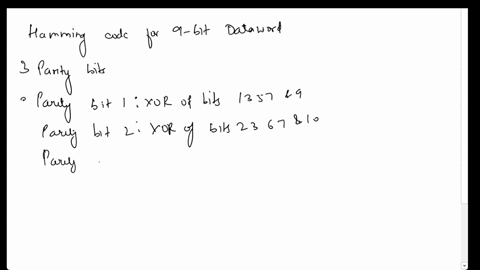 Hamming code for 9-bit Dataword
3 Parity bits
Parity bit 1: XOR of bits 1357 & 9
Parity bit 2: XOR of bits 23 67 & 10
Parity